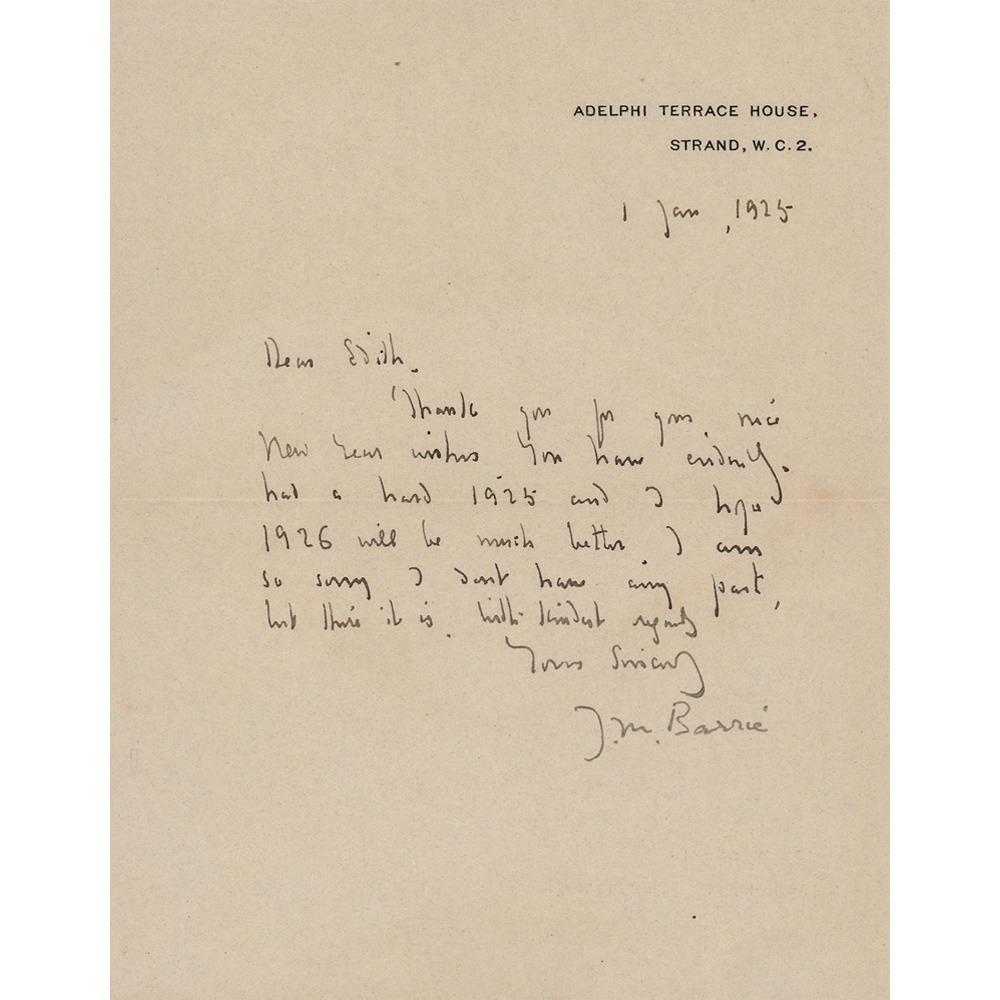 ADELPHI TERRACE HOUSE,
STRAND, W.C.2.
1 Jan, 1925
Dear Edith.
Thank you for your nice
New Year wishes You have evidently
had a hard 1925 and I hope
1926 will be much better. I am
so sorry I dont have any part,
but there it is. With kindest regards
Yours Sincerely
J.M. Barrie